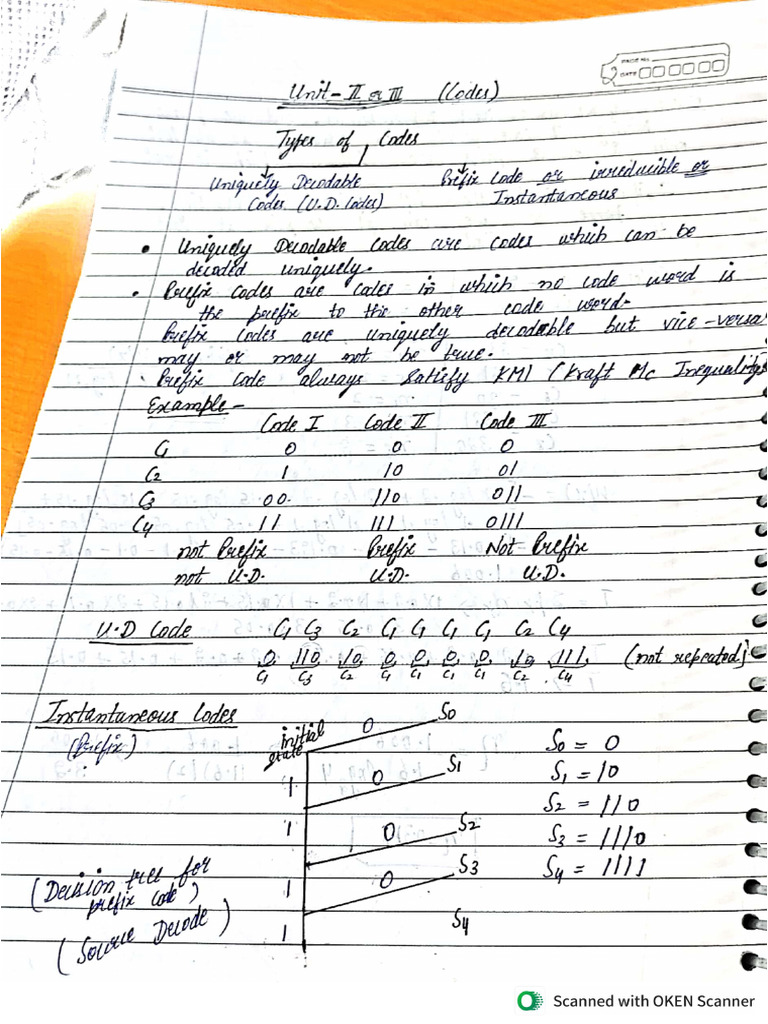 PAGE NO.
DATE
Unit-II or III (Codes)
Types of Codes
Uniquely Decodable Prefix Code or irreducible or
Codes (U.D. Codes) Instantaneous
• Uniquely Decodable Codes are codes which can be
decoded uniquely.
• Prefix codes are codes in which no code word is
the prefix to the other code word.
Prefix Codes are uniquely decodable but vice-versa
may or may not be true.
• Prefix Code always Satisfy KMI (Kraft Mc Inequality)
Example-
Code I Code II Code III
C1 0 0 0
C2 1 10 01
C3 00 110 011
C4 11 111 0111
not Prefix Prefix Not Prefix
not U.D. U.D. U.D.
U.D Code C1 C3 C2 C1 C1 C1 C1 C2 C4
0 110 10 0 0 0 0 10 111 (not repeated)
C1 C3 C2 C1 C1 C1 C1 C2 C4
Instantaneous Codes
(Prefix)
initial state
0 S0
1 0 S1
1 0 S2
1 0 S3
1 S4
S0 = 0
S1 = 10
S2 = 110
S3 = 1110
S4 = 1111
(Decision tree for
prefix code)
(Source Decode)
Scanned with OKEN Scanner